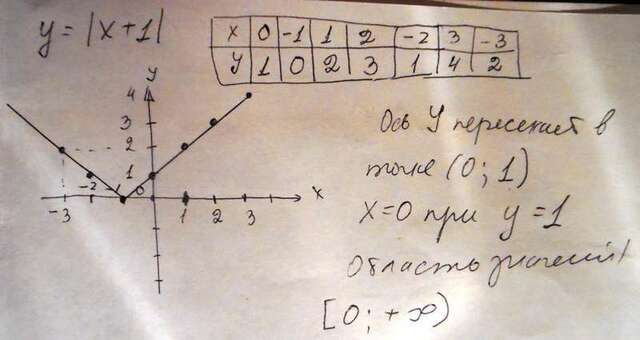 y = |x+1|
x 0 -1 1 2 -2 3 -3
y 1 0 2 3 1 4 2
y
4
3
2
1
-3 -2 -1 0 1 2 3 x
Ось y пересекает в
точке (0; 1)
x=0 при y=1
Область значений
[0; +∞)